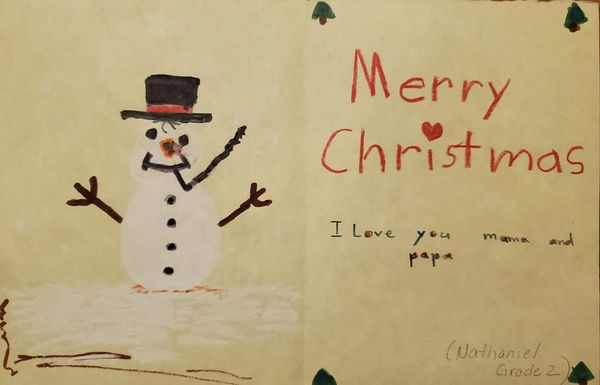 Merry
Christmas
I Love you mama and
papa
(Nathaniel
Grade 2)